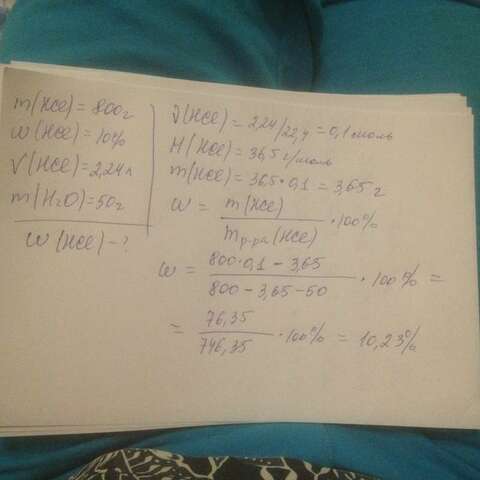 m(HCl) = 800г
w(HCl) = 10%
V(HCl) = 2,24л
m(H₂O) = 50г
w(HCl) - ?
ν(HCl) = 2,24/22,4 = 0,1 моль
M(HCl) = 36,5 г/моль
m(HCl) = 36,5 · 0,1 = 3,65 г
w = m(HCl) / m р-ра (HCl) · 100%
w = 800·0,1 - 3,65 / 800 - 3,65 - 50 · 100% =
= 76,35 / 746,35 · 100% = 10,23%